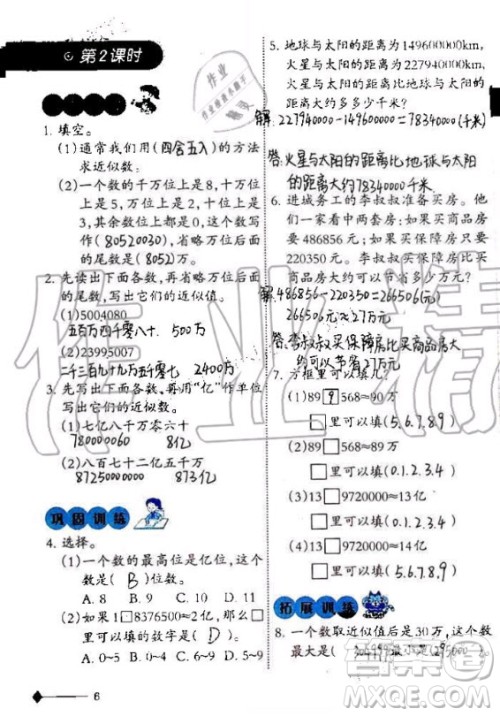 第2课时
1. 填空。
(1)通常我们用(四舍五入)的方法
求近似数。
(2)一个数的千万位上是8,十万位
上是5,万位上是2,十位上是
3,其余数位上都是0,这个数写
作(80520030),省略万位后面
的尾数是(8052)万。
2. 先读出下面各数,再省略万位后面
的尾数,写出它们的近似值。
(1)5004080
五百万四千零八十. 500万
(2)23995007
二千三百九十九万五千零七 2400万
3. 先写出下面各数,再用“亿”作单位
写出它们的近似数。
(1)七亿八千万零六十
780000060 8亿
(2)八百七十二亿五千万
87250000000 873亿
巩固训练
4. 选择。
(1)一个数的最高位是亿位,这个
数是( B )位数。
A. 8 B. 9 C. 10 D. 11
(2)如果1□8376500≈2亿,□里可
以填的数字是( )
A. 0~4 B. 4~9 C. 5~9 D. 0~9
6
5. 地球与太阳的距离为149600000km,
火星与太阳的距离为227940000km,
火星与太阳的距离比地球与太阳的
距离大约多多少千米?
解: 227940000-149600000=78340000(千米)
答:火星与太阳的距离比地球与太阳
的距离大约多78340000千米.
6. 进城务工的李叔叔准备买房。他们
一家看中两套房:如果买商品房要
486856元;如果买保障房只要
220350元。李叔叔买保障房比买
商品房大约可以节省多少万元?
解: 486856-220350=266506(元)
266506元≈27万元
答:李叔叔买保障房比买商品房大
约可以节省27万元
7. 方框里可以填几?
(1)89 9 568≈90万
□里可以填(5.6.7.8.9)
(2)89□568≈89万
□里可以填(0.1.2.3.4)
(3)13□9720000≈13亿
□里可以填(0.1.2.3.4)
(4)13□9720000≈14亿
□里可以填(5.6.7.8.9)
拓展训练
8. 一个数取近似值后是30万,这个数
最大是(304999),最小是(295000)。